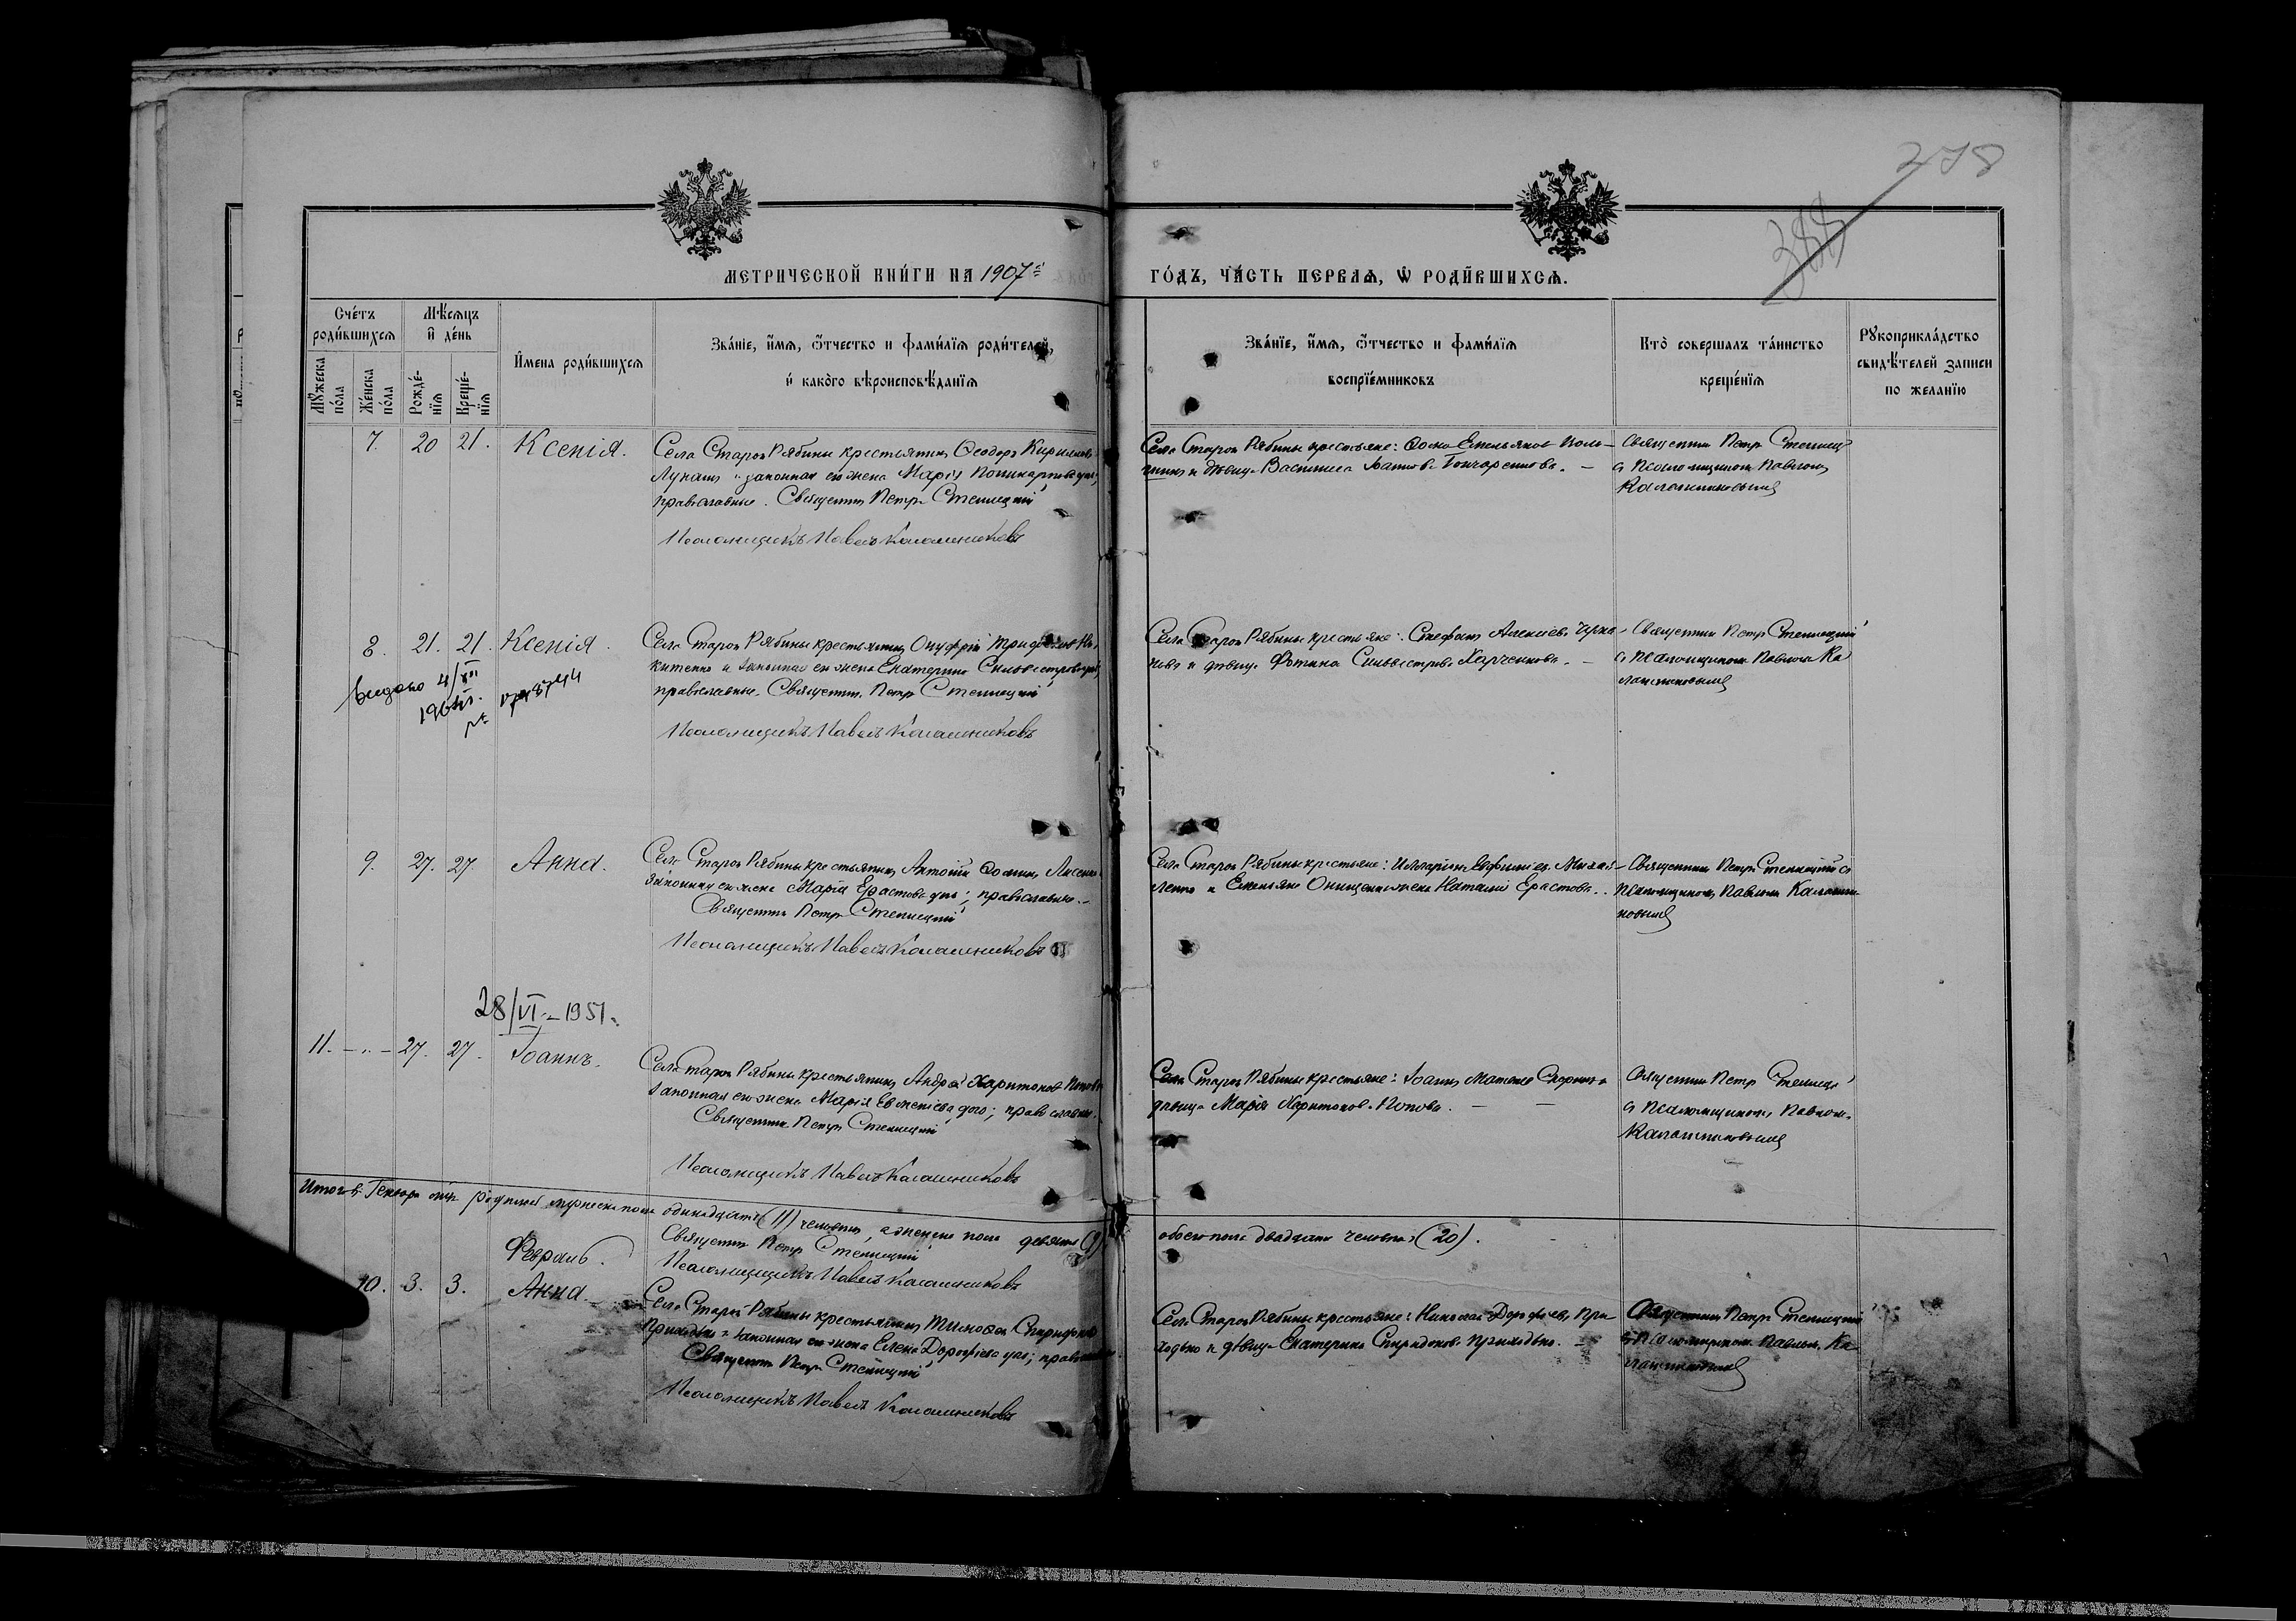 278
388
МЕТРИЧЕСКОЙ КНИ́ГИ НА 1907й
ГО́ДЪ, ЧА́СТЬ ПЕРВАѦ, Ѡ҆ РОДИ́ВШИХСѦ.
Сче́тъ роди́вшихсѧ
Мѣ́сѧцъ и҆ де́нь
Мꙋ́жеска по́ла
Же́нска по́ла
Рожде́нїѧ
Креще́нїѧ
И҆мена̀ роди́вшихсѧ
Зва́нїе, и҆́мѧ, ѻ҆́тчество и фами́лїѧ роди́телей,
и҆ како́го вѣроисповѣ́данїѧ
Зва́нїе, и҆́мѧ, ѻ҆́тчество и фами́лїѧ
воспрїе́мниковъ
Кто̀ соверша́лъ та́инство
креще́нїѧ
Рꙋкоприкла́дство
свидѣ́телей записи
по желанїю
7. 20 21. Ксенія.
Села Старой Рябины крестьянинъ Ѳеодоръ Кирилловъ
законная его жена Марія
православные. Священникъ Петръ Стеллецкій
Псаломщикъ Павелъ Калашниковъ
Села Старой Рябины крестьяне: Ѳома Емельяновъ
и дѣвица Василиса Іоаннова Гончаренкова. —
Священникъ Петръ Стеллецкій
съ псаломщикомъ Павломъ
Калашниковымъ
8. 21. 21. Ксенія.
Выдано 4/XII
Села Старой Рябины крестьянинъ Онуфрій Трифоновъ Ни-
китенко и законная его жена Екатерина Сильвестрова
православные. Священникъ Петръ Стеллецкій
Псаломщикъ Павелъ Калашниковъ
Села Старой Рябины крестьяне: Стефанъ Алексіевъ
и дѣвица Фотина Сильвестрова Харченкова. —
Священникъ Петръ Стеллецкій
съ псаломщикомъ Павломъ Ка-
лашниковымъ
9. 27. 27. Анна.
Села Старой Рябины крестьянинъ Антоній Ѳоминъ
законная его жена Марія Ерастова; православные.
Священникъ Петръ Стеллецкій
Псаломщикъ Павелъ Калашниковъ
Села Старой Рябины крестьяне: Илларіонъ Евфиміевъ Михай-
ленко и Емельяна Онищенко жена Наталія Ерастова.
Священникъ Петръ Стеллецкій съ
псаломщикомъ Павломъ Калашни-
ковымъ
28/VI – 1951.
11. — „ — 27. 27. Іоаннъ.
Села Старой Рябины крестьянинъ Андрей Харитоновъ Поповъ
законная его жена Марія Евменіева; православные.
Священникъ Петръ Стеллецкій
Псаломщикъ Павелъ Калашниковъ
Села Старой Рябины крестьяне: Іоаннъ
дѣвица Марія Харитонова Попова. — —
Священникъ Петръ Стеллецкій
съ псаломщикомъ Павломъ
Калашниковымъ
Итого въ Генварѣ м-цѣ родилось мужеска пола одинадцать (11) человѣкъ, а женска пола девять (9)
обоего пола двадцать человѣкъ (20).
Священникъ Петръ Стеллецкій
Псаломщикъ Павелъ Калашниковъ
Февраль.
10. 3. 3. Анна.
Села Старой Рябины крестьянинъ Тимоѳей Спиридоновъ
Приходько и законная его жена Елена Дорофіева; православные.
Священникъ Петръ Стеллецкій
Псаломщикъ Павелъ Калашниковъ
Села Старой Рябины крестьяне: Николай Дорофіевъ При-
ходько и дѣвица Екатерина Спиридонова Приходько. —
Священникъ Петръ Стеллецкій
съ псаломщикомъ Павломъ Ка-
лашниковымъ